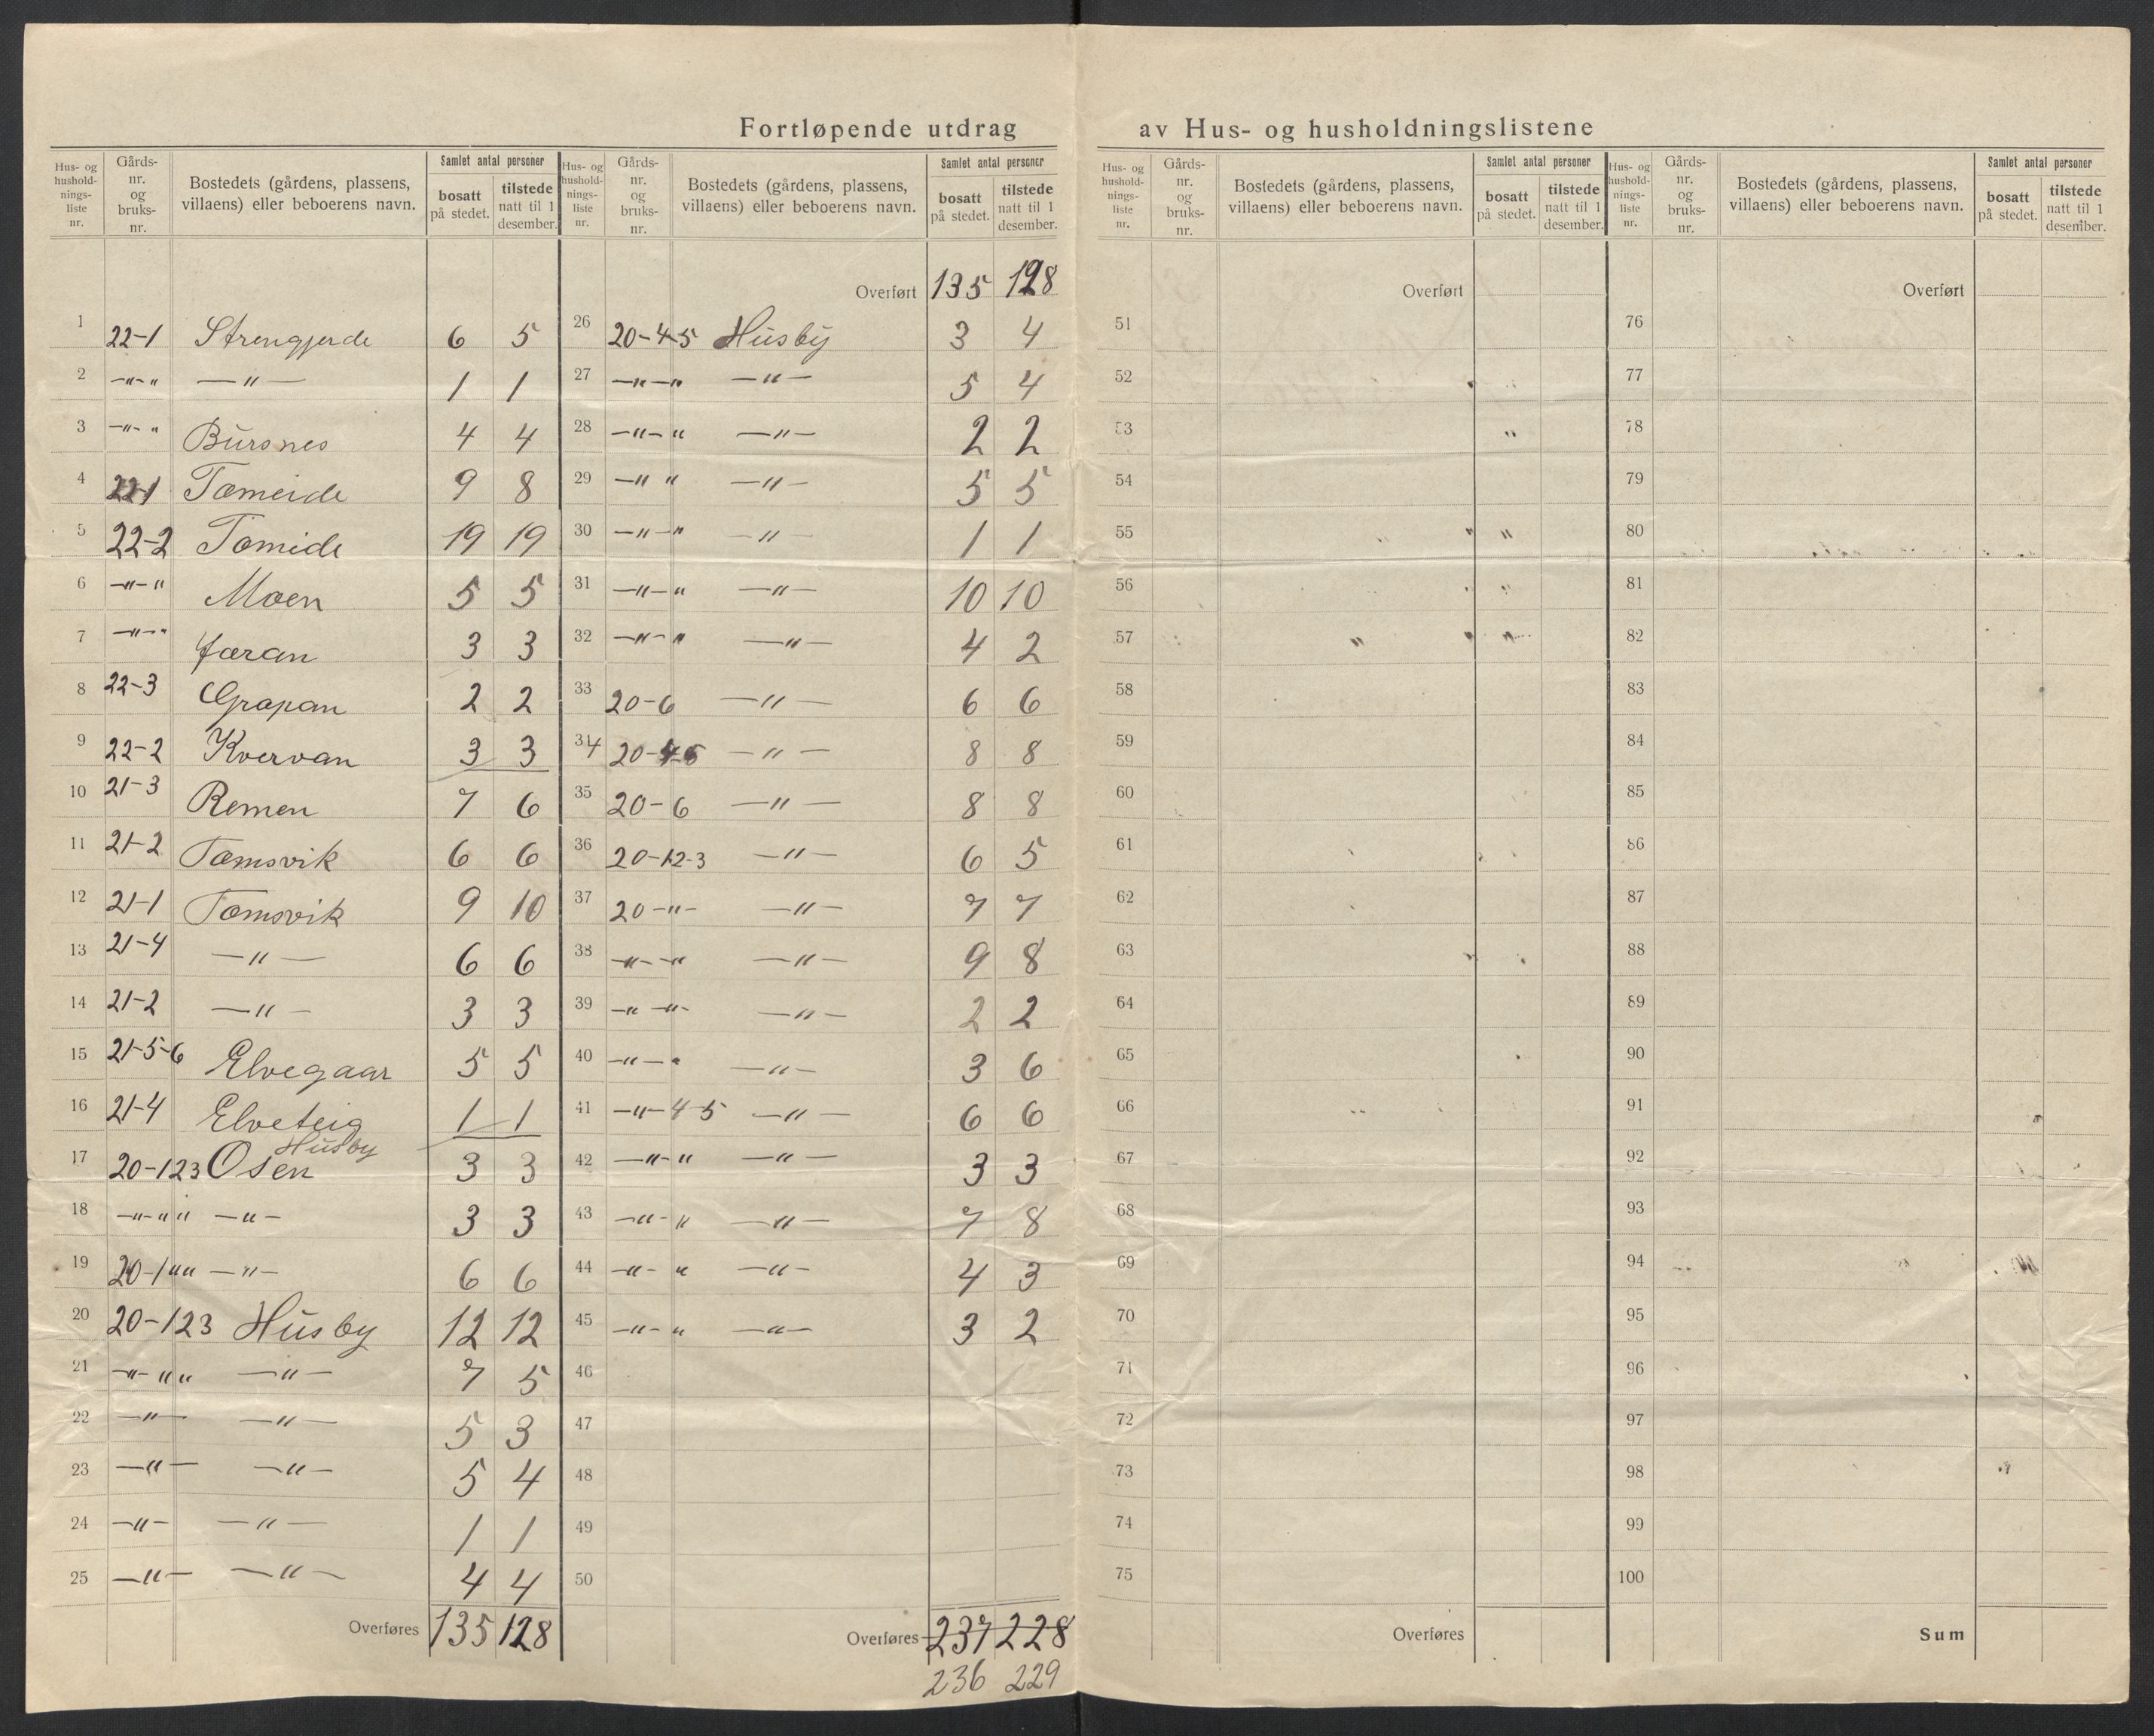 Fortløpende utdrag av Hus- og husholdningslistene
Hus- og hushold-nings-liste nr. Gårds-nr. og bruks-nr. Bostedets (gårdens, plassens, villaens) eller beboerens navn. Samlet antal personer bosatt på stedet. tilstede natt til 1 desember.
1 22-1 Strengjerde 6 5
2 -"-" -"- 1 1
3 -"-" Bursnes 4 4
4 22-1 Tomeide 9 8
5 22-2 Tomide 19 19
6 -"-" Moen 5 5
7 -"-" Jaran 3 3
8 22-3 Grapan 2 2
9 22-2 Kvervan 3 3
10 21-3 Remen 7 6
11 21-2 Tomsvik 6 6
12 21-1 Tomsvik 9 10
13 21-4 -"- 6 6
14 21-2 -"- 3 3
15 21-5-6 Elvegaar 5 5
16 21-4 Elveteig 1 1
Husby
17 20-123 Osen 3 3
18 -"-"" -"- 3 3
19 20-1"" -"- 6 6
20 20-123 Husby 12 12
21 -"-"" -"- 7 5
22 -"- -"- 5 3
23 -"- -"- 5 4
24 -"- -"- 1 1
25 -"- -"- 4 4
Overføres 135 128
Hus- og hushold-nings-liste nr. Gårds-nr. og bruks-nr. Bostedets (gårdens, plassens, villaens) eller beboerens navn. Samlet antal personer bosatt på stedet. tilstede natt til 1 desember.
Overført 135 128
26 20-4-5 Husby 3 4
27 -"-" -"- 5 4
28 -"-" -"- 2 2
29 -"" -"- 5 5
30 -"-" -"- 1 1
31 -"-" -"- 10 10
32 -"-" -"- 4 2
33 20-6 -"- 6 6
34 20-4-5 -"- 8 8
35 20-6 -"- 8 8
36 20-12-3 -"- 6 5
37 20-"- -"- 7 7
38 -"-" -"- 9 8
39 -"-"- -"- 2 2
40 -"-" -"- 3 6
41 -"-4-5 -"- 6 6
42 -"-" -"- 3 3
43 -"-" -"- 7 8
44 -"-" -"- 4 3
45 -"-" -"- 3 2
46
47
48
49
50
Overføres 237 228
236 229
Hus- og hushold-nings-liste nr. Gårds-nr. og bruks-nr. Bostedets (gårdens, plassens, villaens) eller beboerens navn. Samlet antal personer bosatt på stedet. tilstede natt til 1 desember.
Overført
51
52
53
54
55
56
57
58
59
60
61
62
63
64
65
66
67
68
69
70
71
72
73
74
75
Overføres
Hus- og hushold-nings-liste nr. Gårds-nr. og bruks-nr. Bostedets (gårdens, plassens, villaens) eller beboerens navn. Samlet antal personer bosatt på stedet. tilstede natt til 1 desember.
Overført
76
77
78
79
80
81
82
83
84
85
86
87
88
89
90
91
92
93
94
95
96
97
98
99
100
Sum